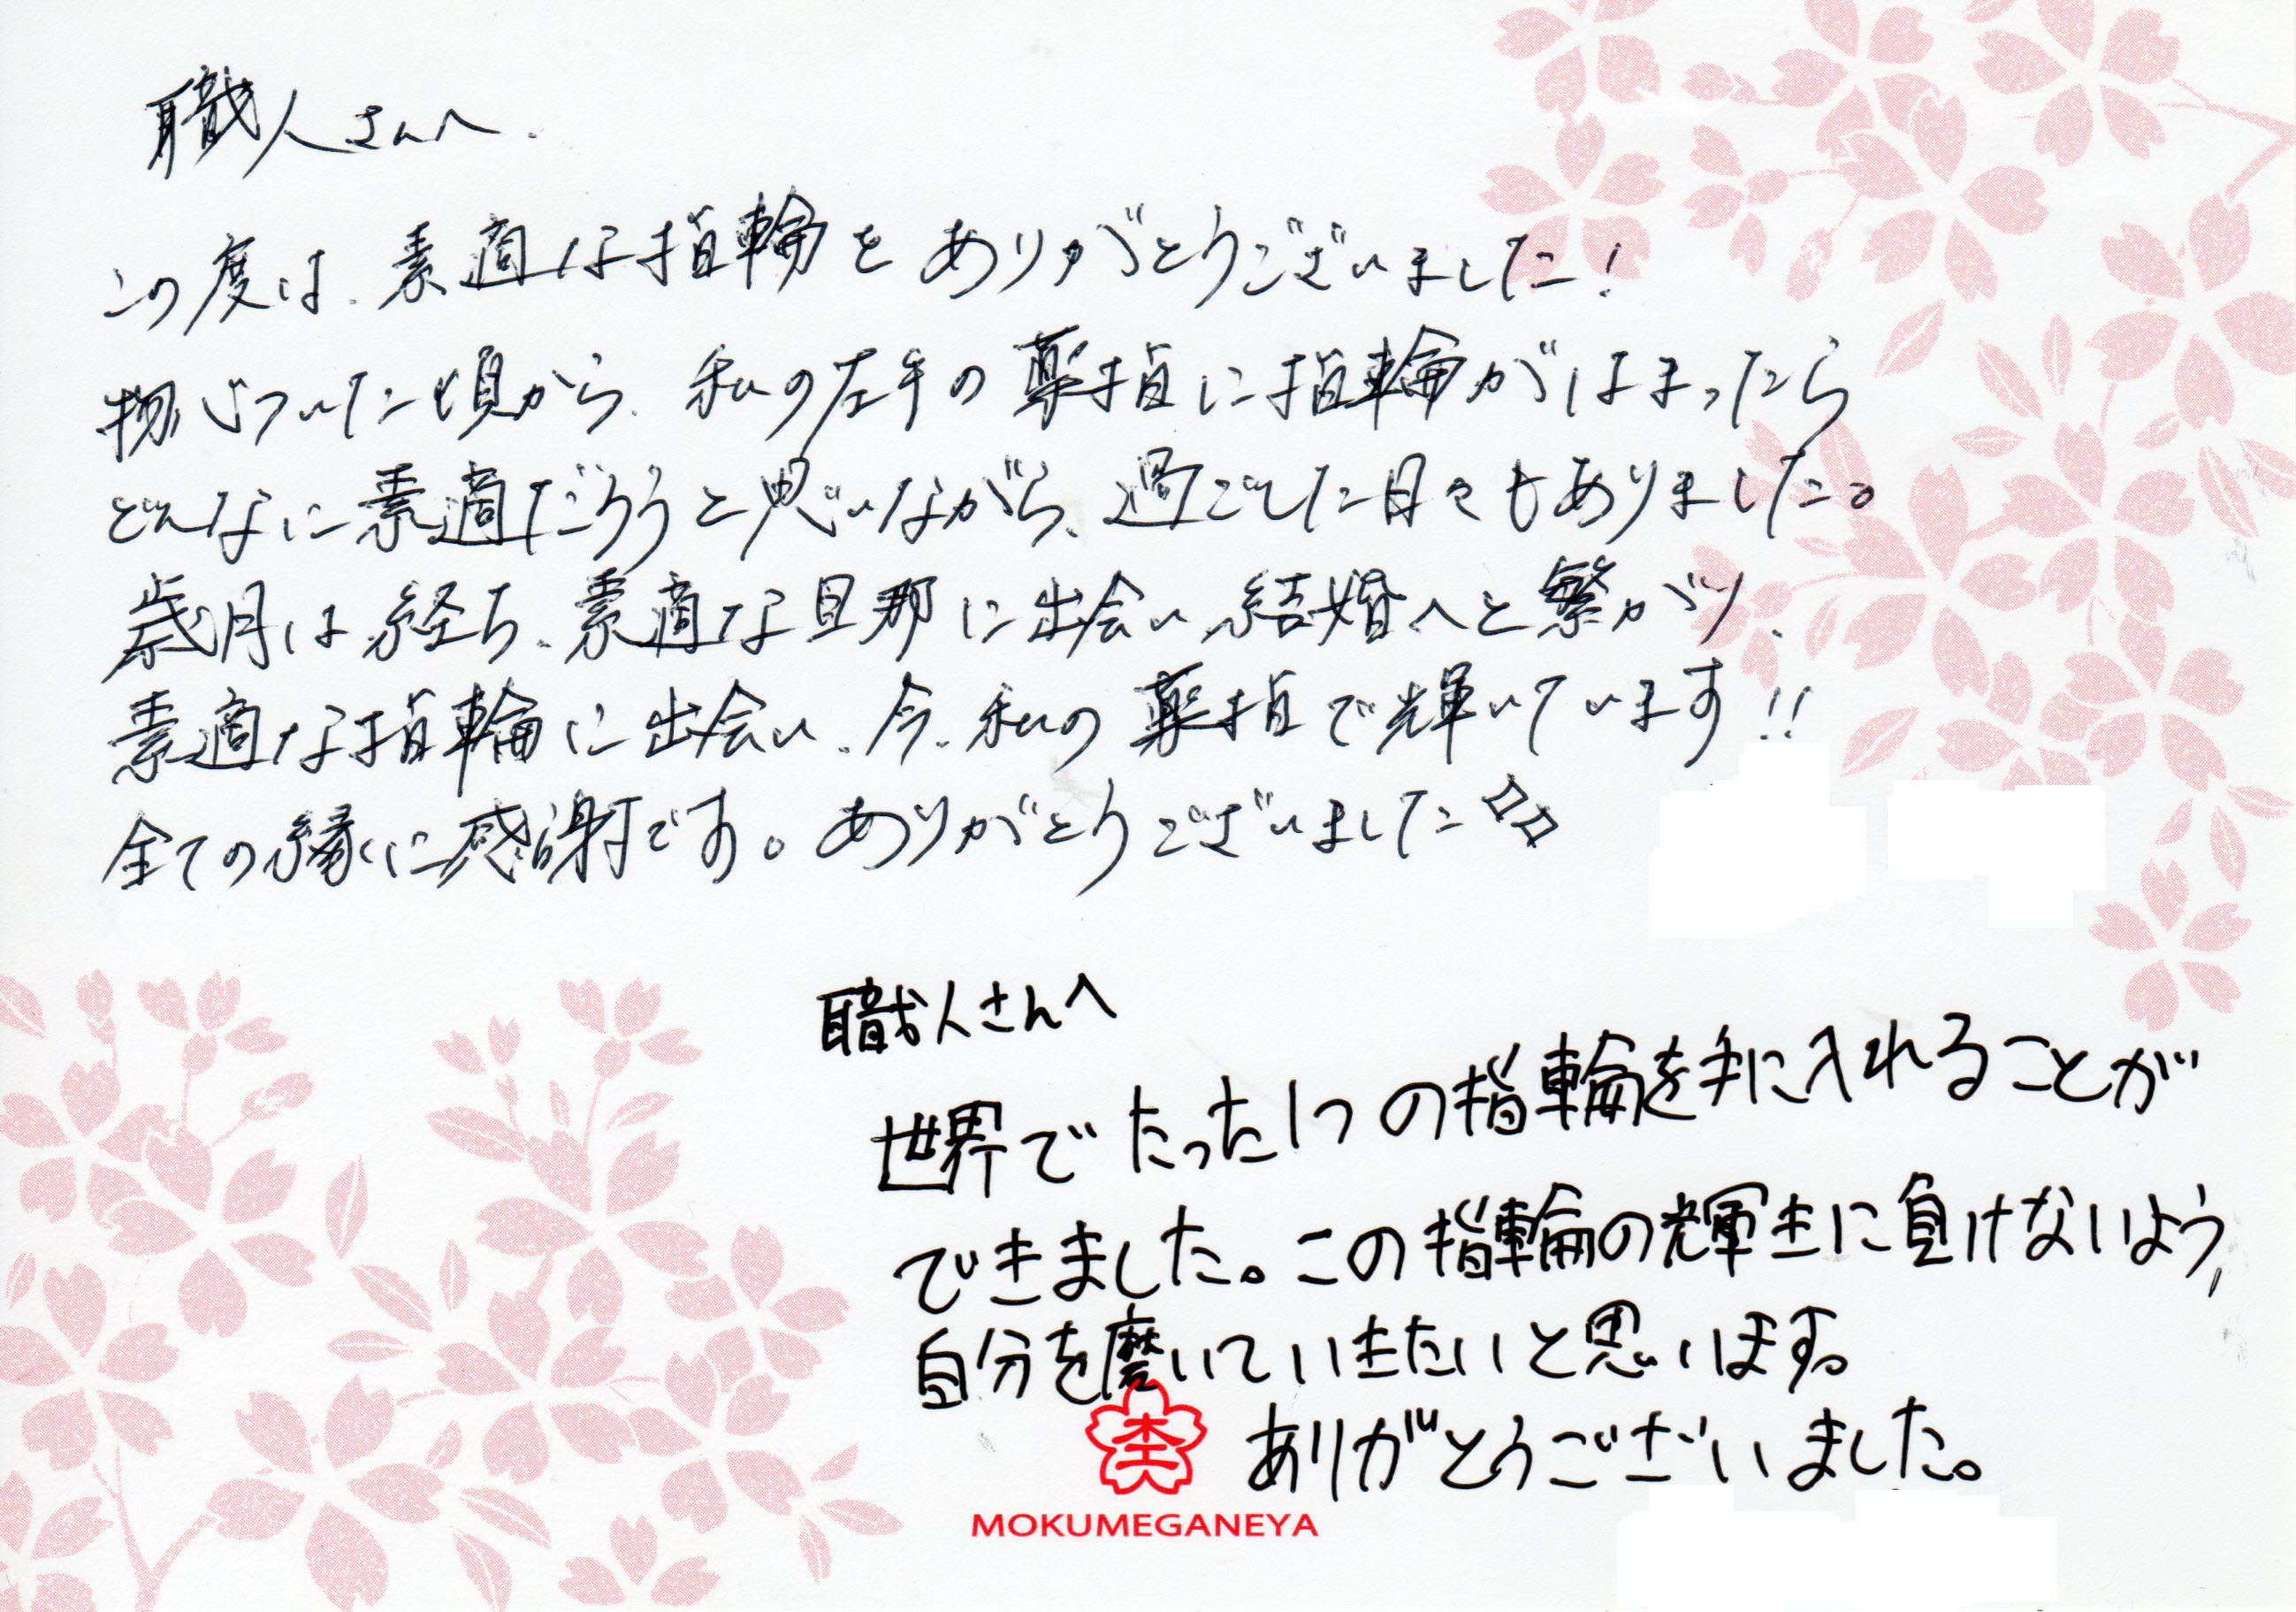 職人さんへ.
この度は、素適な指輪をありがとうございました!
物心ついた頃から、私の左手の薬指に指輪がはまったら
どんなに素適だろうと思いながら、過ごした日々もありました。
歳月は経ち、素適な旦那に出会い、結婚へと繋がり、
素適な指輪に出会い、今、私の薬指で輝いています!!
全ての縁に感謝です。ありがとうございました
職人さんへ
世界でたった1つの指輪を手に入れることが
できました。この指輪の輝きに負けないよう,
自分を磨いていきたいと思います。
ありがとうございました。
MOKUMEGANEYA